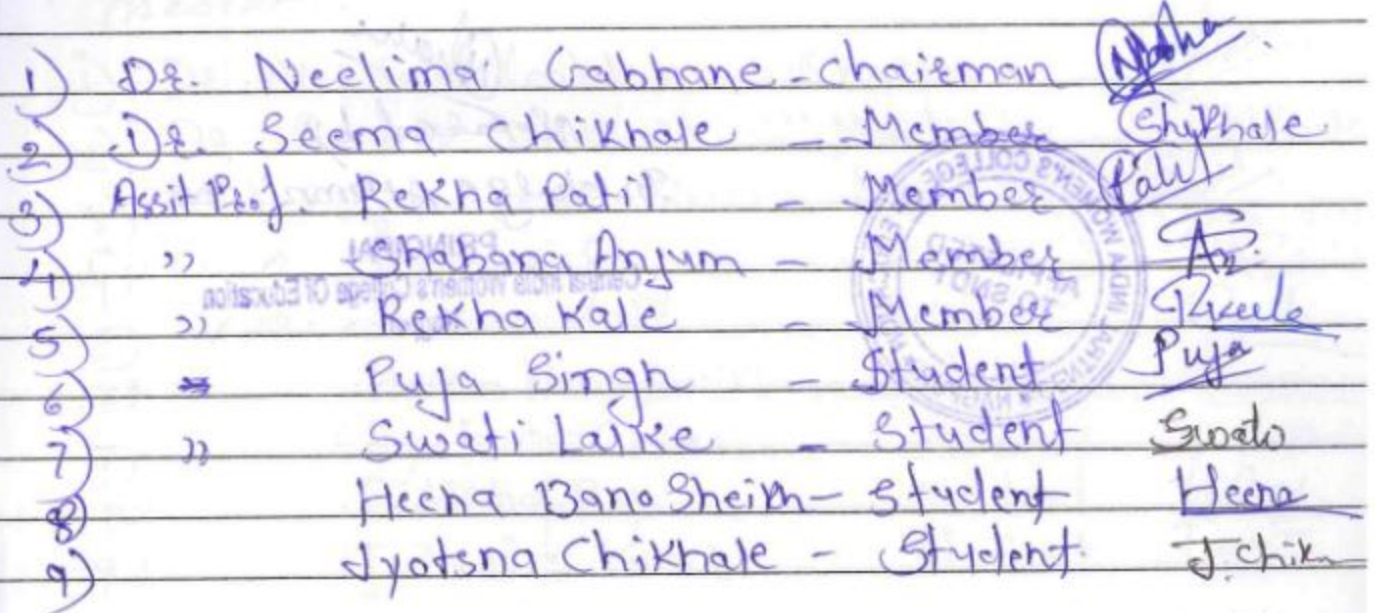 1) Dr. Neelima Gabhane - Chairman
2) Dr. Seema Chikhale - Member Chikhale
3) Assit Prof. Rekha Patil - Member Patil
4) ,, Shabana Anjum - Member
5) ,, Rekha Kale - Member
6) Puja Singh - Student Puja
7) ,, Swati Laike - Student Swati
8) Heena Bano Sheikh - Student Heena
9) Jyotsna Chikhale - Student J. Chik
PRINCIPAL
Central India Women's College Of Education